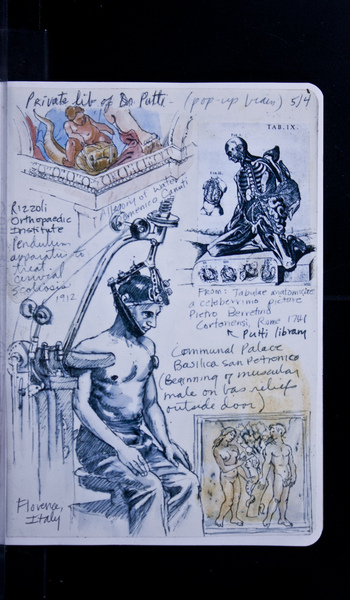 Private lib of Dr. Putti - (pop-up brain) 5/4
TAB. IX.
Allegory of Water
Domenico Canuti
Rizzoli
Orthopaedic
Institute
Pendulum
apparatus to
treat
cervical
scoliosis
1912
From: Tabulae anatomicae
a celeberrimo pictore
Pietro Berretino
Cortonensi, Rome 1741
Putti library
Communal Palace
Basilica San Petronico
(Beginning of muscular
male on bas relief
outside door)
Florence,
Italy